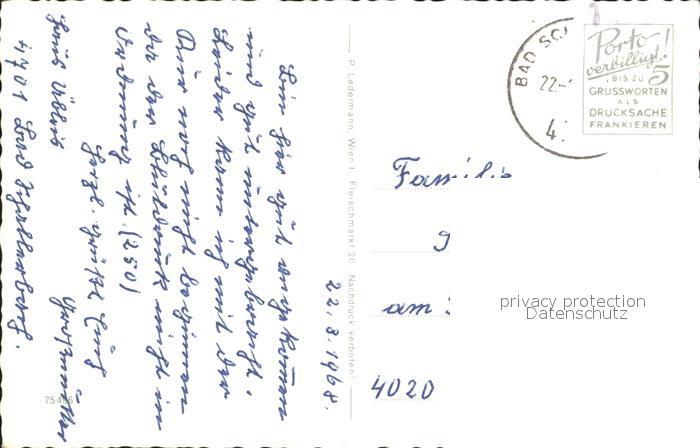 22.8.1968.
Bin hier gut angekommen
und gut untergebracht.
Leider kann ich mit der
Kur noch nicht beginnen
da der Blutdruck nicht in
Ordnung ist. (250)
Herzl. Grüße Euch
4701 Bad
P. Ledermann, Wien I, Fleischmarkt 20. Nachdruck verboten!
BAD SC
22.
4
Porto
verbilligt!
BIS ZU 5
GRUSSWORTEN
ALS
DRUCKSACHE
FRANKIEREN
Familie
am
4020
privacy protection
Datenschutz